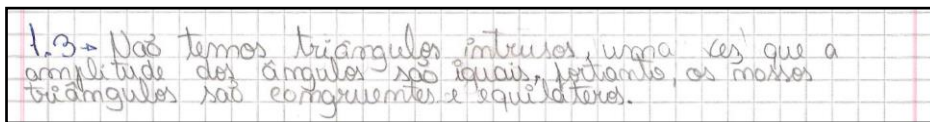 1.3→ Não temos triângulos intrusos, uma ves que a
amplitude dos ângulos são iguais, portanto, os nossos
triângulos são congruentes e equiláteros.